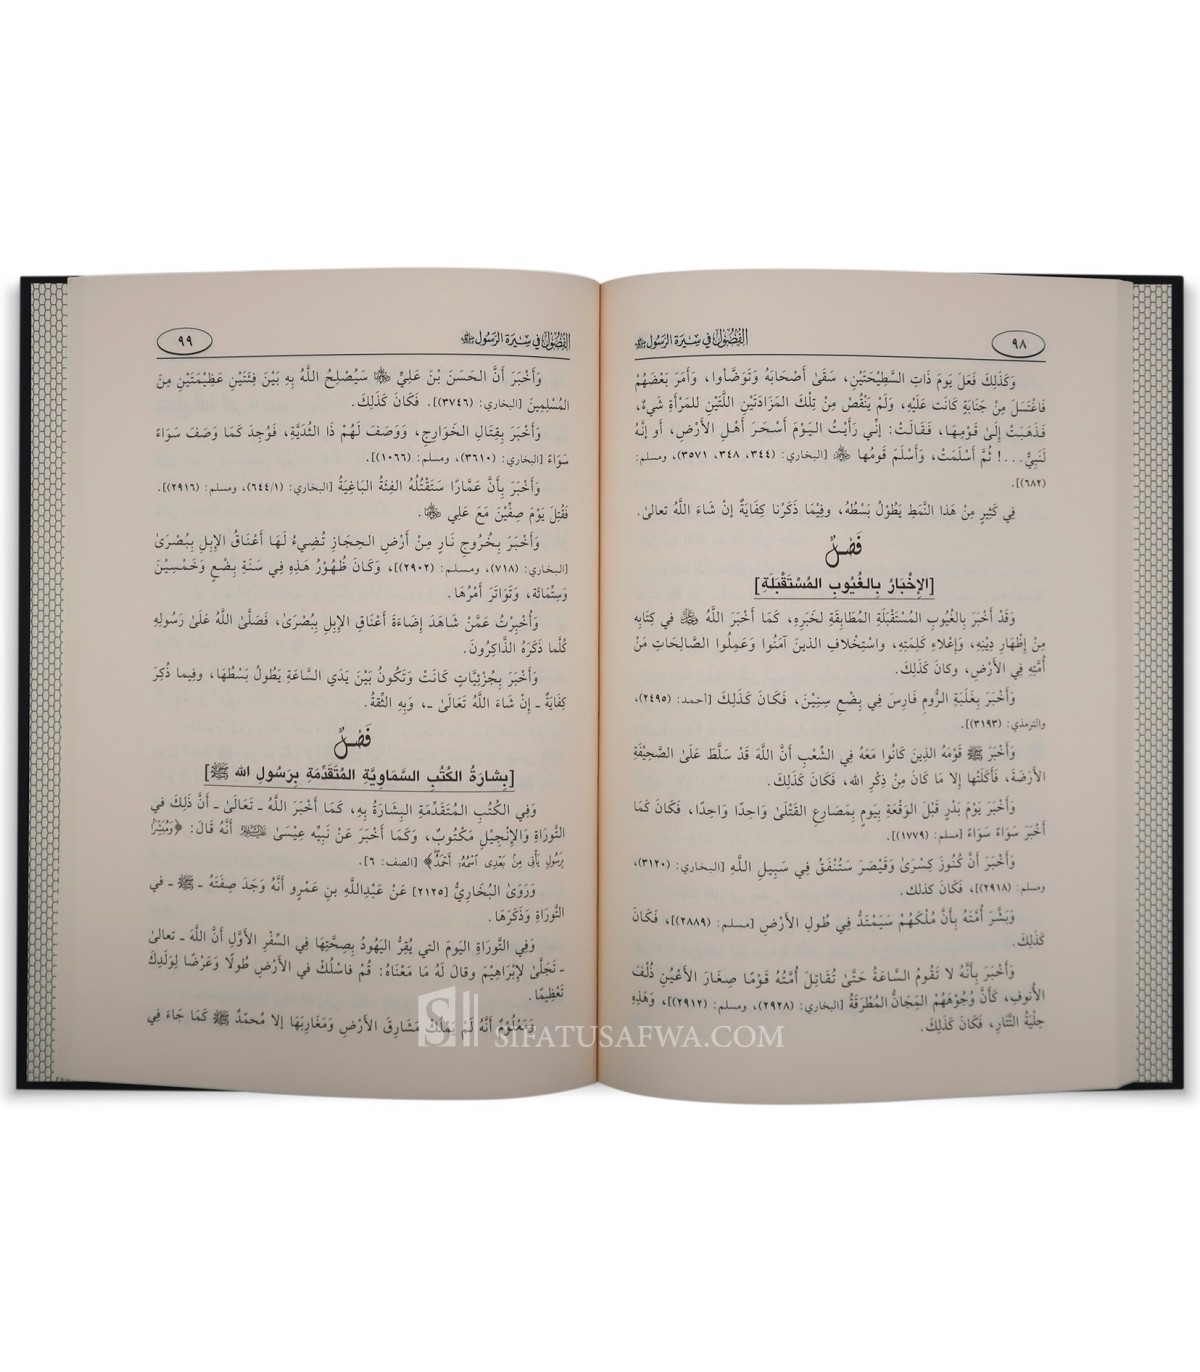 ٩٨
الفُصُول في سِيرَة الرَسُول ﷺ
وَكَذَلِكَ فَعَلَ يَومَ ذَاتِ السَّطِيْحَتَيْنِ، سَقَىٰ أَصْحَابَهُ وَتَوَضَّأوا، وَأَمَرَ بَعْضَهُمْ
فَاغْتَسَلَ مِنْ جَنَابَةٍ كَانَت عَلَيْهِ، وَلَمْ يَنْقُصْ مِنْ تِلْكَ المَزَادَتَيْنِ اللَّتَيْنِ لِلمَرْأةِ شَيءٌ،
فَذَهَبَتْ إِلَىٰ قَوْمِهَا، فَقَالَتْ: إنِّي رَأَيْتُ اليَوْمَ أَسْحَرَ أَهْلِ الأَرْضِ، أو إنَّهُ
لَنَبِيٌّ...! ثُمَّ أسْلَمَتْ، وَأَسْلَمَ قَومُها ﷺ [البخاري: (٣٤٤، ٣٤٨، ٣٥٧١)، ومسلم:
(٦٨٢)].
فِي كَثِيرٍ مِنْ هَذا النَّمَطِ يَطُوْلُ بَسْطُهُ، وَفِيْمَا ذَكَرْنا كِفَايَةٌ إنْ شَاءَ اللَّهُ تعالىٰ.
فَصْلٌ
[الإِخْبَارُ بِالْغُيُوبِ المُسْتَقْبَلَةِ]
وَقَدْ أخْبَرَ بِالغُيُوبِ المُسْتَقْبَلَةِ المُطَابِقَةِ لخَبَرِهِ، كَمَا أَخْبَرَ اللَّهُ ﷻ فِي كِتَابِهِ
مِنْ إِظْهَارِ دِيْنِهِ، وَإِعْلاءِ كَلِمَتِهِ، واسْتِخْلافِ الذينَ آمَنُوا وَعَمِلُوا الصَّالِحَاتِ مِنْ
أُمَّتِهِ فِي الأَرْضِ، وكانَ كَذَلِكَ.
وَأَخْبَرَ بِغَلَبَةِ الرُّومِ فَارِسَ فِي بِضْعِ سِنِيْنَ، فَكَانَ كَذَلِكَ [أحمد: (٢٤٩٥)،
والترمذي: (٣١٩٣)].
وَأَخْبَرَ ﷺ قَوْمَهُ الذِينَ كَانُوا مَعَهُ فِي الشِّعْبِ أَنَّ اللَّهَ قَدْ سَلَّطَ عَلَىٰ الصَّحِيْفَةِ
الأَرَضَةَ، فَأَكَلَتْها إلا مَا كَانَ مِنْ ذِكْرِ الله، فَكَانَ كَذَلِكَ.
وَأَخْبَرَ يَوْمَ بَدْرٍ قَبْلَ الوَقْعَةِ بِيَومٍ بِمَصَارِعِ القَتْلَىٰ وَاحِدًا وَاحِدًا، فَكَانَ كَمَا
أخْبَرَ سَوَاءً سَوَاءً [مسلم: (١٧٧٩)].
وَأَخْبَرَ أَنَّ كُنُوزَ كِسْرَىٰ وَقَيْصَرَ سَتُنْفَقُ فِي سَبِيلِ اللَّهِ [البخاري: (٣١٢٠)،
ومسلم: (٢٩١٨)]، فَكَانَ كذلك.
وَبَشَّرَ أُمَّتَهُ بِأَنَّ مُلْكَهُمْ سَيَمْتَدُّ فِي طُولِ الأَرْضِ [مسلم: (٢٨٨٩)]، فَكَانَ
كَذَلِكَ.
وَأَخْبَرَ بِأَنَّهُ لا تَقُومُ السَّاعَةُ حَتَّىٰ تُقَاتِلَ أُمَّتُهُ قَوْمًا صِغَارَ الأَعْيُنِ ذُلْفَ
الأُنوفِ، كَأَنَّ وُجُوْهَهُمْ المَجَانُّ المُطْرَقَةُ [البخاري: (٢٩٢٨)، ومسلم: (٢٩١٢)]، وَهَذِهِ
حِلْيَةُ التَّتَارِ، فَكَانَ كَذَلِكَ.
الفُصُول في سِيرَة الرَسُول ﷺ
٩٩
وَأَخْبَرَ أَنَّ الحَسَنَ بْنَ عَلِيٍّ ﷺ سَيُصْلِحُ اللَّهُ بِهِ بَيْنَ فِئَتَيْنِ عَظِيْمَتَيْنِ مِنَ
المُسْلِمِينَ [البخاري: (٣٧٤٦)]. فَكَانَ كَذَلِكَ.
وَأَخْبَرَ بِقِتَالِ الخَوَارِجِ، وَوَصَفَ لَهُمْ ذَا الثُدَيَّةِ، فَوُجِدَ كَمَا وَصَفَ سَوَاءً
سَوَاءً [البخاري: (٣٦١٠)، ومسلم: (١٠٦٦)].
وَأَخْبَرَ بِأَنَّ عَمَّارًا سَتَقْتُلُهُ الفِئَةُ البَاغِيَةُ [البخاري: (٦٤٤/١)، ومسلم: (٢٩١٦)].
فَقُتِلَ يَوْمَ صِفِّيْنَ مَعَ عَلِي ﷺ.
وَأَخْبَرَ بِخُرُوجِ نَارٍ مِنْ أَرْضِ الحِجَازِ تُضِيءُ لَهَا أَعْنَاقُ الإِبِلِ بِبُصْرَىٰ
[البخاري: (٧١٨)، ومسلم: (٢٩٠٢)]، وَكَانَ ظُهُوْرُ هَذِهِ فِي سَنَةِ بِضْعٍ وَخَمْسِيْنَ
وَسِتِّمَائَة، وَتَوَاتَرَ أَمْرُهَا.
وَأُخْبِرْتُ عَمَّنْ شَاهَدَ إضَاءَةَ أَعْنَاقِ الإبِلِ بِبُصْرَىٰ، فَصَلَّىٰ اللَّهُ عَلَىٰ رَسُولِهِ
كُلَّما ذَكَرَهُ الذَّاكِرُونَ.
وَأَخْبَرَ بِجُزْئِيَّاتٍ كَانَتْ وَتَكُونُ بَيْنَ يَدَي السَّاعَةِ يَطُولُ بَسْطُهَا، وفِيما ذُكِرَ
كِفَايَةٌ ـ إِنْ شَاءَ اللَّهُ تَعَالَىٰ ـ، وَبِهِ الثِّقَةُ.
فَصْلٌ
[بِشَارَةُ الكُتُبِ السَّمَاوِيَّةِ المُتَقَدِّمَةِ بِرَسُولِ الله ﷺ]
وَفِي الكُتُبِ المُتَقَدِّمَةِ البِشَارَةُ بِهِ، كَمَا أَخْبَرَ اللَّهُ ـ تَعَالَىٰ ـ أَنَّ ذَلِكَ في
التَّورَاةِ وَالإِنْجِيْلِ مَكْتُوبٌ، وَكَمَا أَخْبَرَ عَنْ نَبِيِّهِ عِيْسَىٰ عليه السلام أنَّهُ قَالَ: ﴿وَمُبَشِّرًا
بِرَسُولٍ يَأْتِي مِنْ بَعْدِي اسْمُهُ أَحْمَدُ﴾ [الصف: ٦].
وَرَوَىٰ البُخَارِيُّ [٢١٢٥] عَنْ عَبْدِاللَّهِ بنِ عَمْرٍو أَنَّهُ وَجَدَ صِفَتَهُ ـ ﷺ ـ في
التَّورَاةِ وَذَكَرَهَا.
وَفِي التَّورَاةِ اليَومَ التي يُقِرُّ اليَهُودُ بِصِحَّتِهَا فِي السِّفْرِ الأَوَّلِ أَنَّ اللَّهَ ـ تعالىٰ
ـ تَجَلَّىٰ لإِبْرَاهِيْمَ وقالَ لَهُ مَا مَعْنَاهُ: قُمْ فاسْلُكْ في الأَرْضِ طُولًا وَعَرْضًا لِوَلَدِكَ
تَعْظِيْمًا.
وَمَعْلُومٌ أَنَّهُ لَمْ يَمْلِكْ مَشَارِقَ الأَرْضِ وَمَغَارِبَهَا إلا مُحمَّدٌ ﷺ كَمَا جَاءَ فِي
SIFATUSAFWA.COM